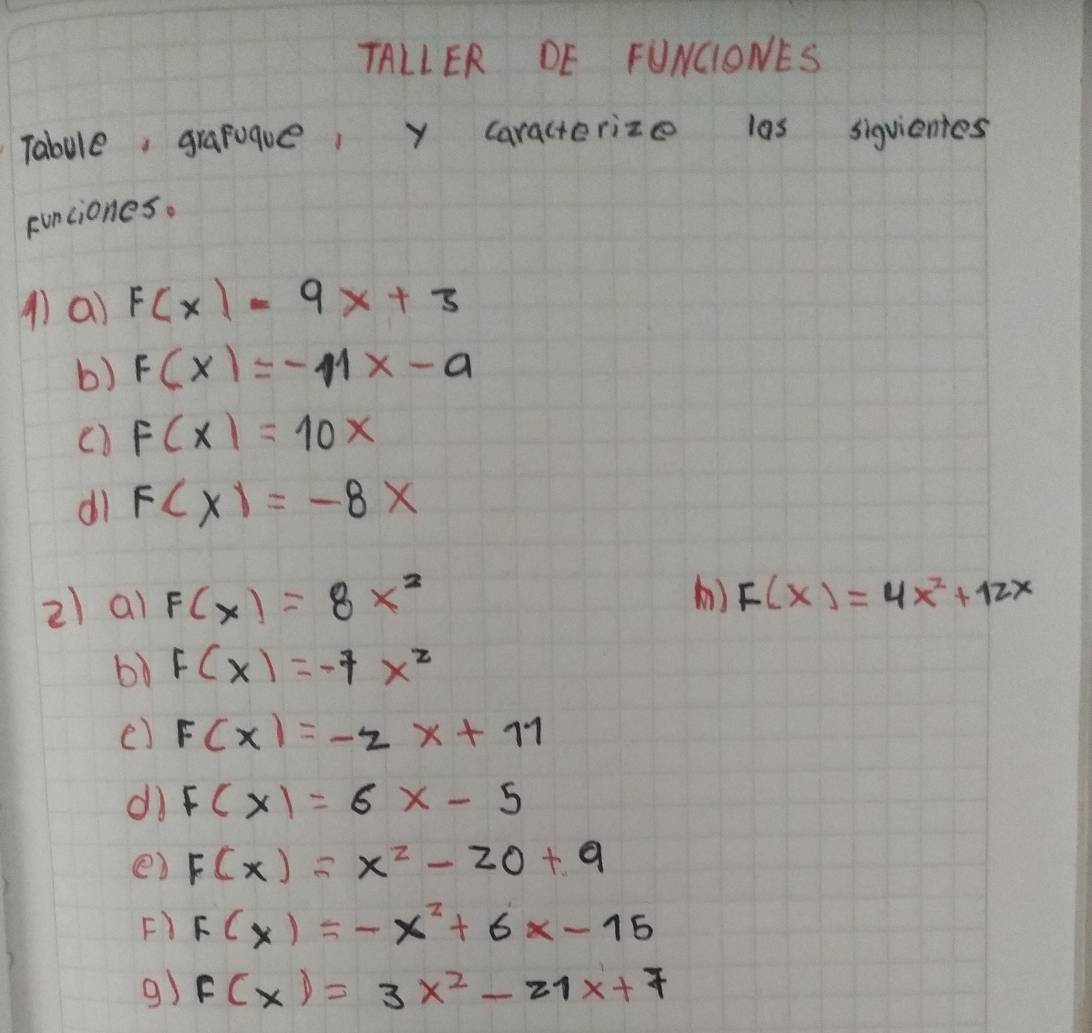 TALLER DE FUNCIONES
Tabule, grafuque, y caracterize las siguientes
Funciones.
1) a) F(x) = 9x + 3
b) F(x) = -11x - 9
c) F(x) = 10x
d) F(x) = -8x
2) a) F(x) = 8x²
h) F(x) = 4x² + 12x
b) F(x) = -7x²
c) F(x) = -2x + 11
d) F(x) = 6x - 5
e) F(x) = x² - 20 + 9
F) F(x) = -x² + 6x - 15
g) F(x) = 3x² - 21x + 7